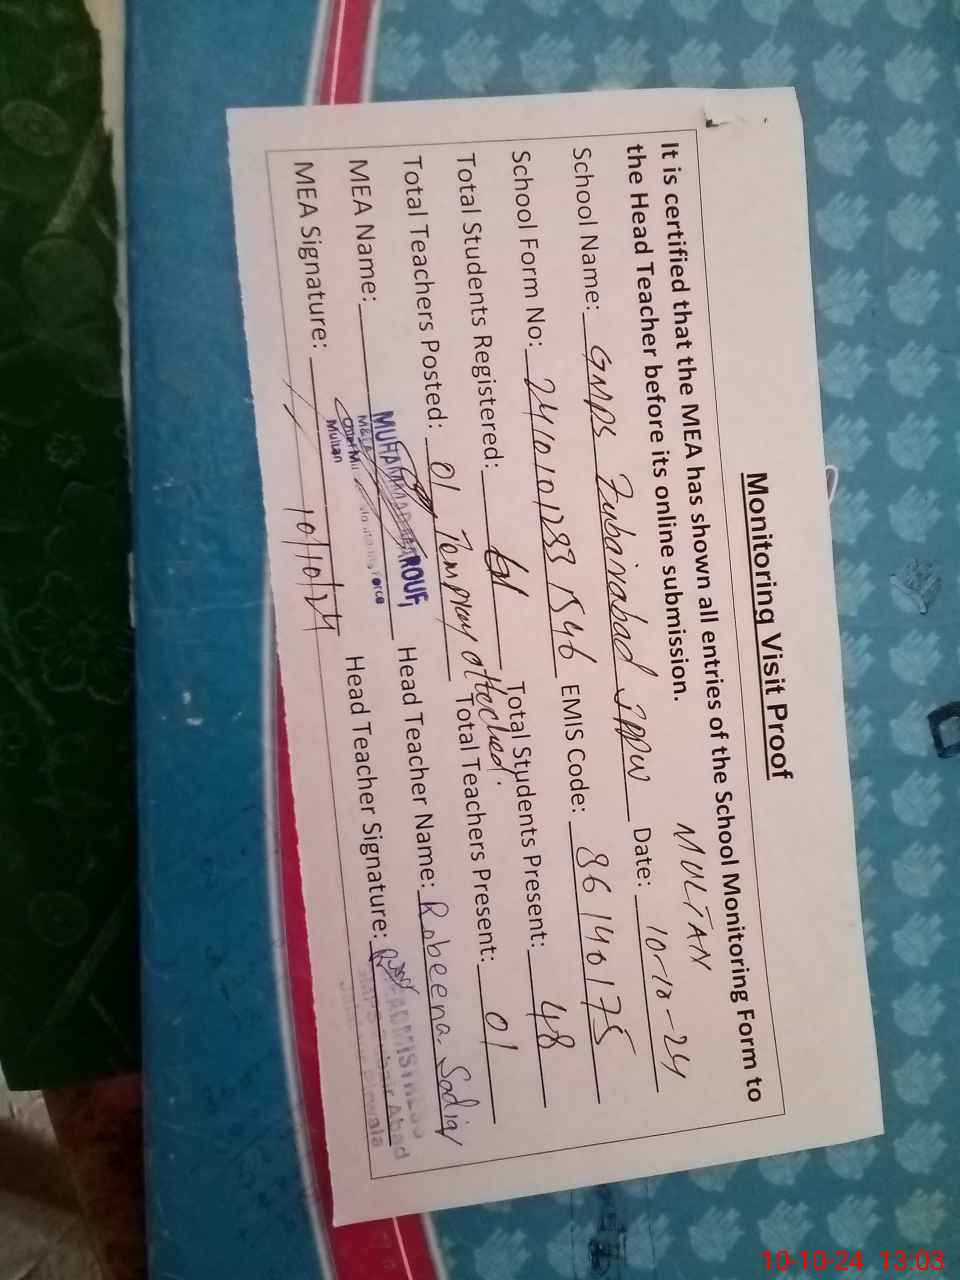 Monitoring Visit Proof
It is certified that the MEA has shown all entries of the School Monitoring Form to
the Head Teacher before its online submission.
MULTAN
School Name: GMPS Zubairabad JPPW Date: 10-10-24
School Form No: 24101012331546 EMIS Code: 86140175
Total Students Registered: 61 Total Students Present: 48
Total Teachers Posted: 01 Tempray attached. Total Teachers Present: 01
MEA Name: MUHAMMAD Head Teacher Name: Robeena Sadiq
MEA Signature: 10/10/24 Head Teacher Signature:
Multan
Force
HEADMISTRESS
Abad
10-10-24 13:03